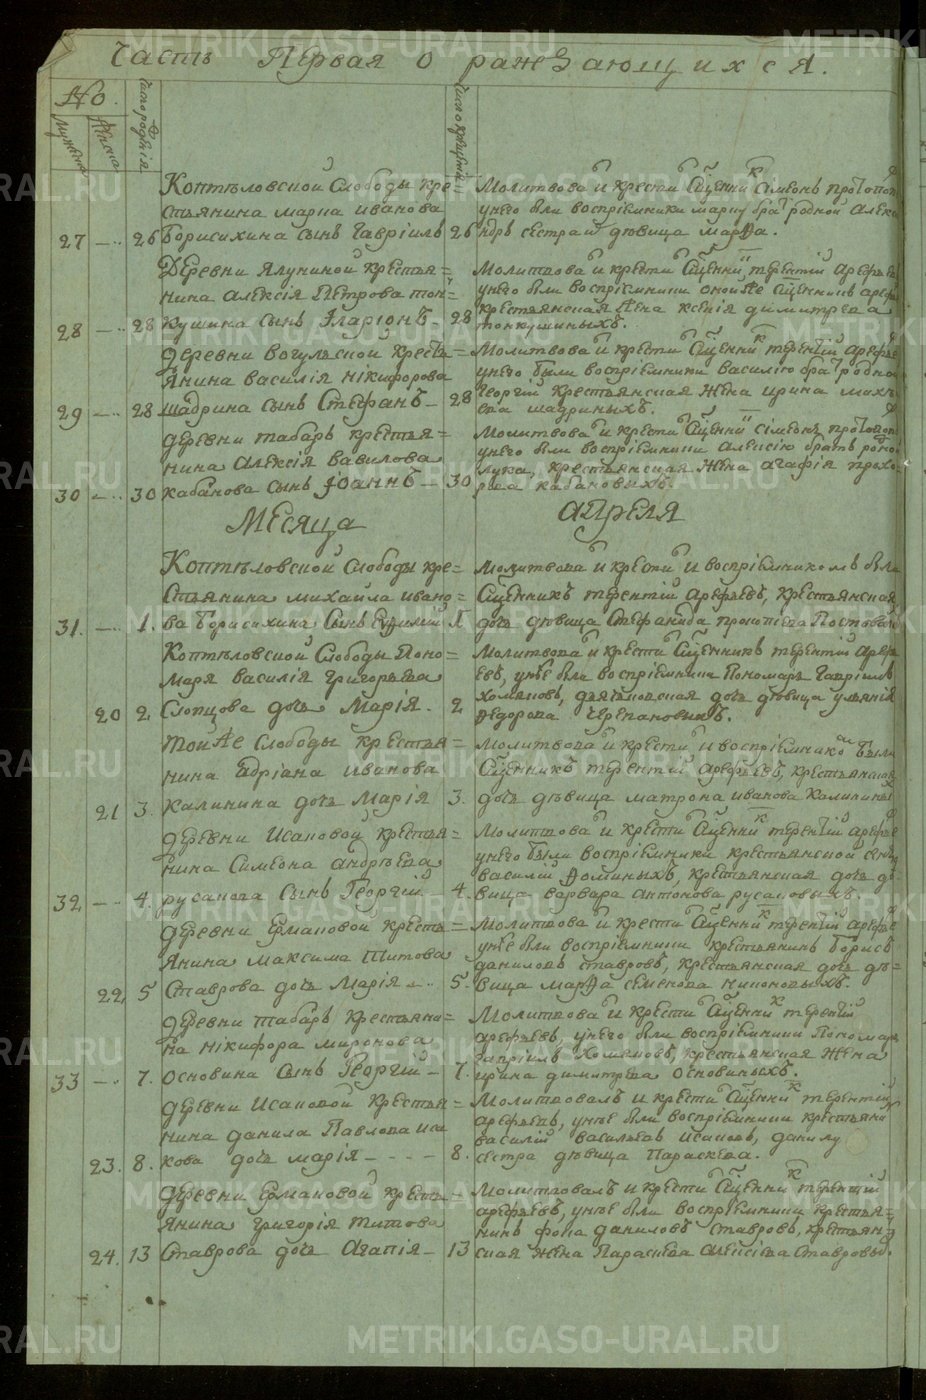 Часть Первая о раждающихся.
No.
мужеска
женска
число рождения
число крещения
Коптѣловской Слободы кре=
стьянина марка иванова
27 — 26 Борисихина сынъ Гавріилъ 26
Молитвова и крести Сщенни Сімеонъ протопоп
унего были воспріемники марку бра родной Алекса
ндръ сестра дѣвица марѳа.
Деревни Ялуниной крестья=
нина алексія Петрова тон=
28 — 28 кушина сынъ Іларіонъ — 28
Молитвова и крести Сщенни терентій Арефье
унего были воспріемники оной же Сщенникъ арефье
крестьянская Жена ксенія димитрева
тонкушиныхъ.
деревни вогулской кресть=
янина василія нікифорова
29 — 28 шадрина сынъ Стефанъ — 28
Молитвова и крести Сщенни терентій арефье
унего были воспріемники василію бра родной
Георгій крестьянская Жена ирина миха
ева шадриныхъ.
деревни табаръ крестья=
нина Алексія вавилова
30 — 30 кабанова сынъ Іоаннъ — 30
Молитвова и крести Сщенни сімеонъ протопоп
унего были воспріемники Алексію братъ родной
лука, крестьянская Жена агафія прохо
рова кабановыхъ.
Месяца Апреля
Коптѣловской слободы кре=
стьянина михаила ивано=
31. — 1. ва Борисихина Сынъ Евфимій 1.
молитвова и крести и воспріемникомъ были
Сщенникъ терентій арефьевъ, крестьянская
дочь дѣвица Стефанида прокопіева Постовал
Коптѣловской Слободы Поно=
маря василія григорьева
20 2. Слопцова дочь Марія. 2
Молитвова и крести Сщенникъ терентій арефь
евъ, унее были воспріемники Пономарь Гавріилъ
хомяковъ, дьячковская дочь дѣвица уліанія
Ѳедорова Черепановыхъ.
тойже слободы крестья=
нина Адріана иванова
21 3. Калинина дочь Марія 3.
Молитвова и крести и воспріемнико были
Сщенникъ терентій арефьевъ, крестьянская
дочь дѣвица матрона иванова калининых
деревни Исаковой крестья=
нина Симеона андрѣева
32 — 4. русакова Сынъ Георгій — 4.
Молитвова и крести Сщенни терентій арефье
унего были воспріемники крестьянской сынъ
василій Ѳоминыхъ, крестьянская дочь дѣ
вица варвара антонова русаковыхъ.
деревни Ермаковой кресть=
янина максима титова
22 5 Ставрова дочь марія — 5.
Молитвова и крести Сщенни терентій арефье
унее были воспріемники крестьянинъ Борисъ
даниловъ ставровъ, крестьянская дочь дѣ=
вица марѳа семенова никоновыхъ.
деревни табаръ крестьяни=
на нікифора миронова
33 — 7. Основина Сынъ Георгій — 7.
Молитвова и крести Сщенни терентій
арефьевъ, унего были воспріемники Пономарь
гавріилъ хомяковъ, крестьянская Жена
ирина димитрева основиныхъ.
деревни Исаковой крестья=
нина данила Павлова иса
23. 8. кова дочь марія — — — 8.
Молитвовалъ и крести Сщенни терентій
арефьевъ, унее были воспріемники крестьяни
василій васильевъ исаковъ, данилу
сестра дѣвица Параскева.
деревни Ермаковой кресть=
янина григорія титова
24. 13 Ставрова дочь Агапія — 13
Молитвовалъ и крести Сщенни терентій
арефьевъ, унее были воспріемники крестья=
нинъ фока даниловъ ставровъ, крестьян=
ская жена Параскева алексіева Ставровых.
METRIKI.GASO-URAL.RU